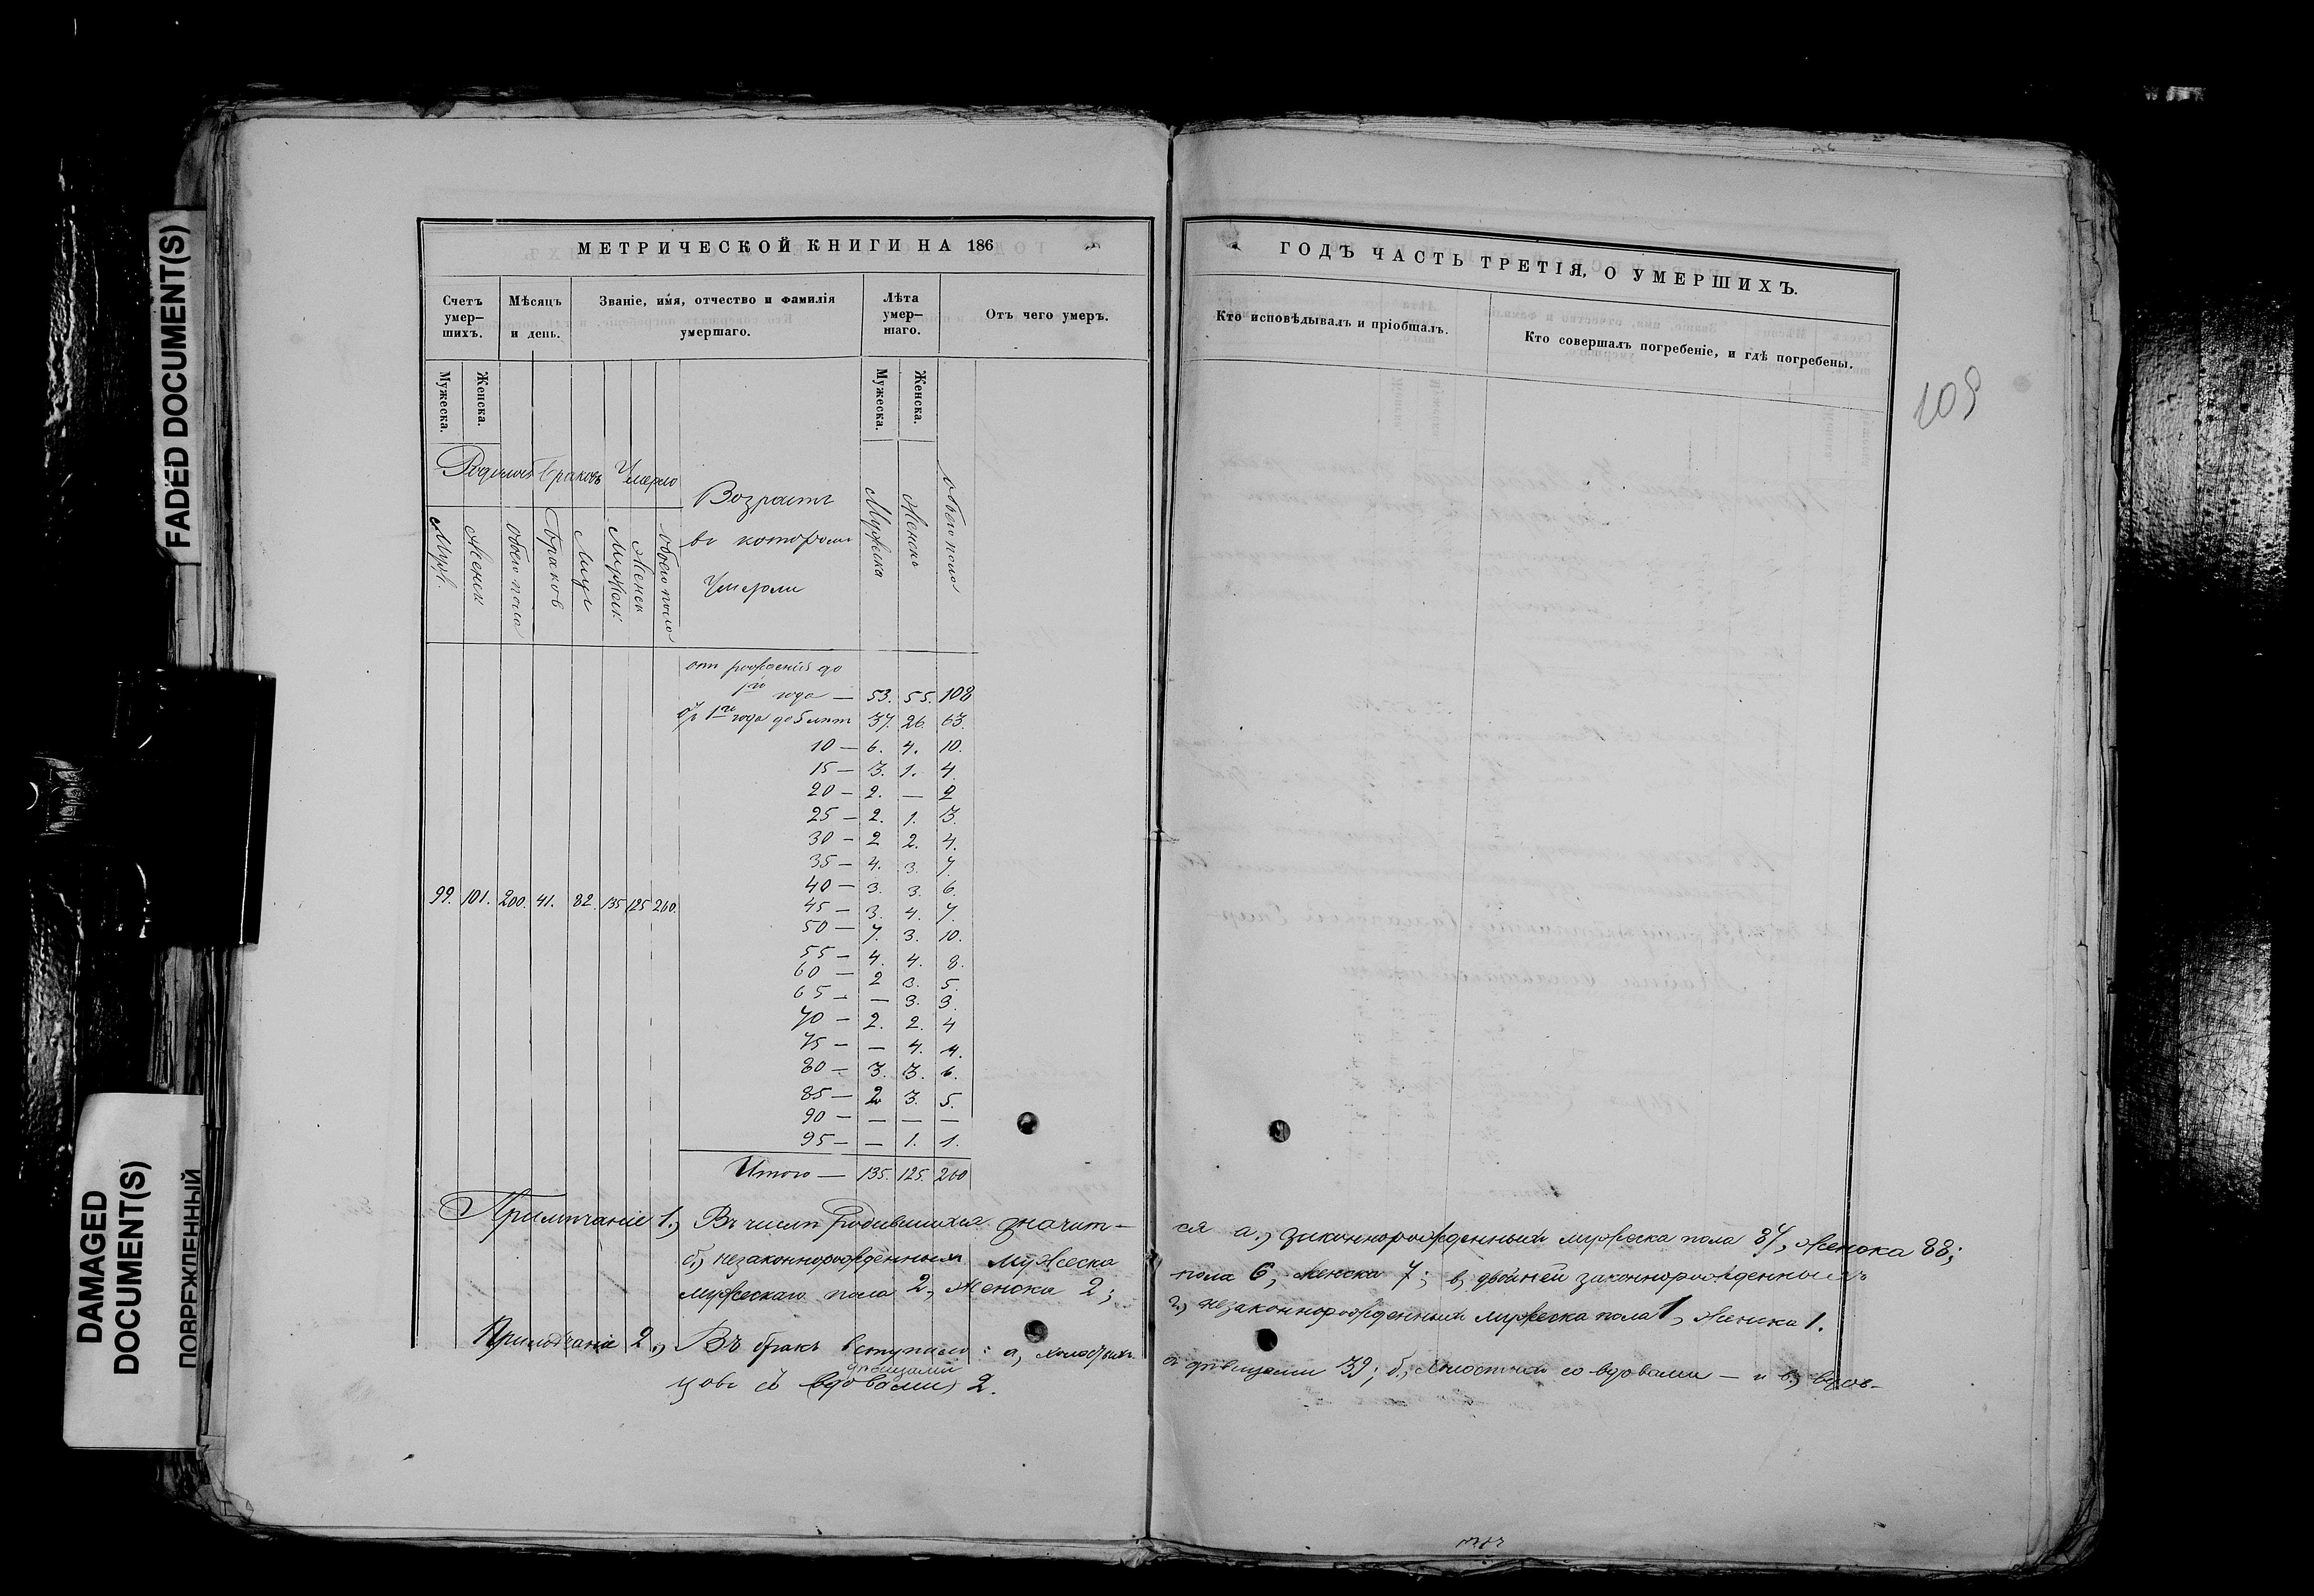 FADED DOCUMENT(S)
DAMAGED
DOCUMENT(S)
ПОВРЕЖДЕННЫЙ
МЕТРИЧЕСКОЙ КНИГИ НА 186
Счетъ умер— шихъ.
Мѣсяцъ и день.
Званіе, имя, отчество и фамилія умершаго.
Лѣта умер— шаго.
Отъ чего умеръ.
Мужеска. Женска. Мужеска. Женска.
Родилось Браковъ Умерло
Возрастъ
въ которомъ
Умерли
Муж. Женск Обоего пола Браков Лицъ Мужск Женск Обоего пола Мужеска Женскъ обоего пола
от рожденія до
1го года — 53. 55. 108
От 1го года до 5 лѣт 37. 26. 63.
10 — 6. 4. 10.
15 — 3. 1. 4.
20 — 2. — 2
25 — 2. 1. 3.
30 — 2 2. 4.
35 — 4. 3. 7.
40 — 3. 3. 6.
99. 101. 200. 41. 82. 135 125 260.
45 — 3. 4. 7.
50 — 7. 3. 10.
55 — 4. 4. 8.
60 — 2 3. 5.
65 — — 3. 3.
70 — 2. 2. 4
75 — — 4. 4.
80 — 3. 3. 6.
85 — 2 3. 5.
90 — — — —
95 — — 1. 1.
Итого — 135. 125. 260
Примѣчаніе 1.) Въ числѣ родившихся значит—
б.) незаконнорожденныхъ мужеска
мужескаго пола 2, женска 2;
Примѣчаніе 2.) Въ бракъ вступило: а, холостыхъ
дѣвицами
цовъ съ (вдовами) 2.
ГОДЪ ЧАСТЬ ТРЕТІЯ, О УМЕРШИХЪ.
Кто исповѣдывалъ и пріобщалъ.
Кто совершалъ погребеніе, и гдѣ погребены.
109
ся а.) законнорожденныхъ мужеска пола 87, женска 88;
пола 6, женска 7; в, двойней законнорожденныхъ
г.) незаконнорожденныхъ мужеска пола 1, женска 1.
съ дѣвицами 39; б., холостыхъ со вдовами — и в.) вдов—